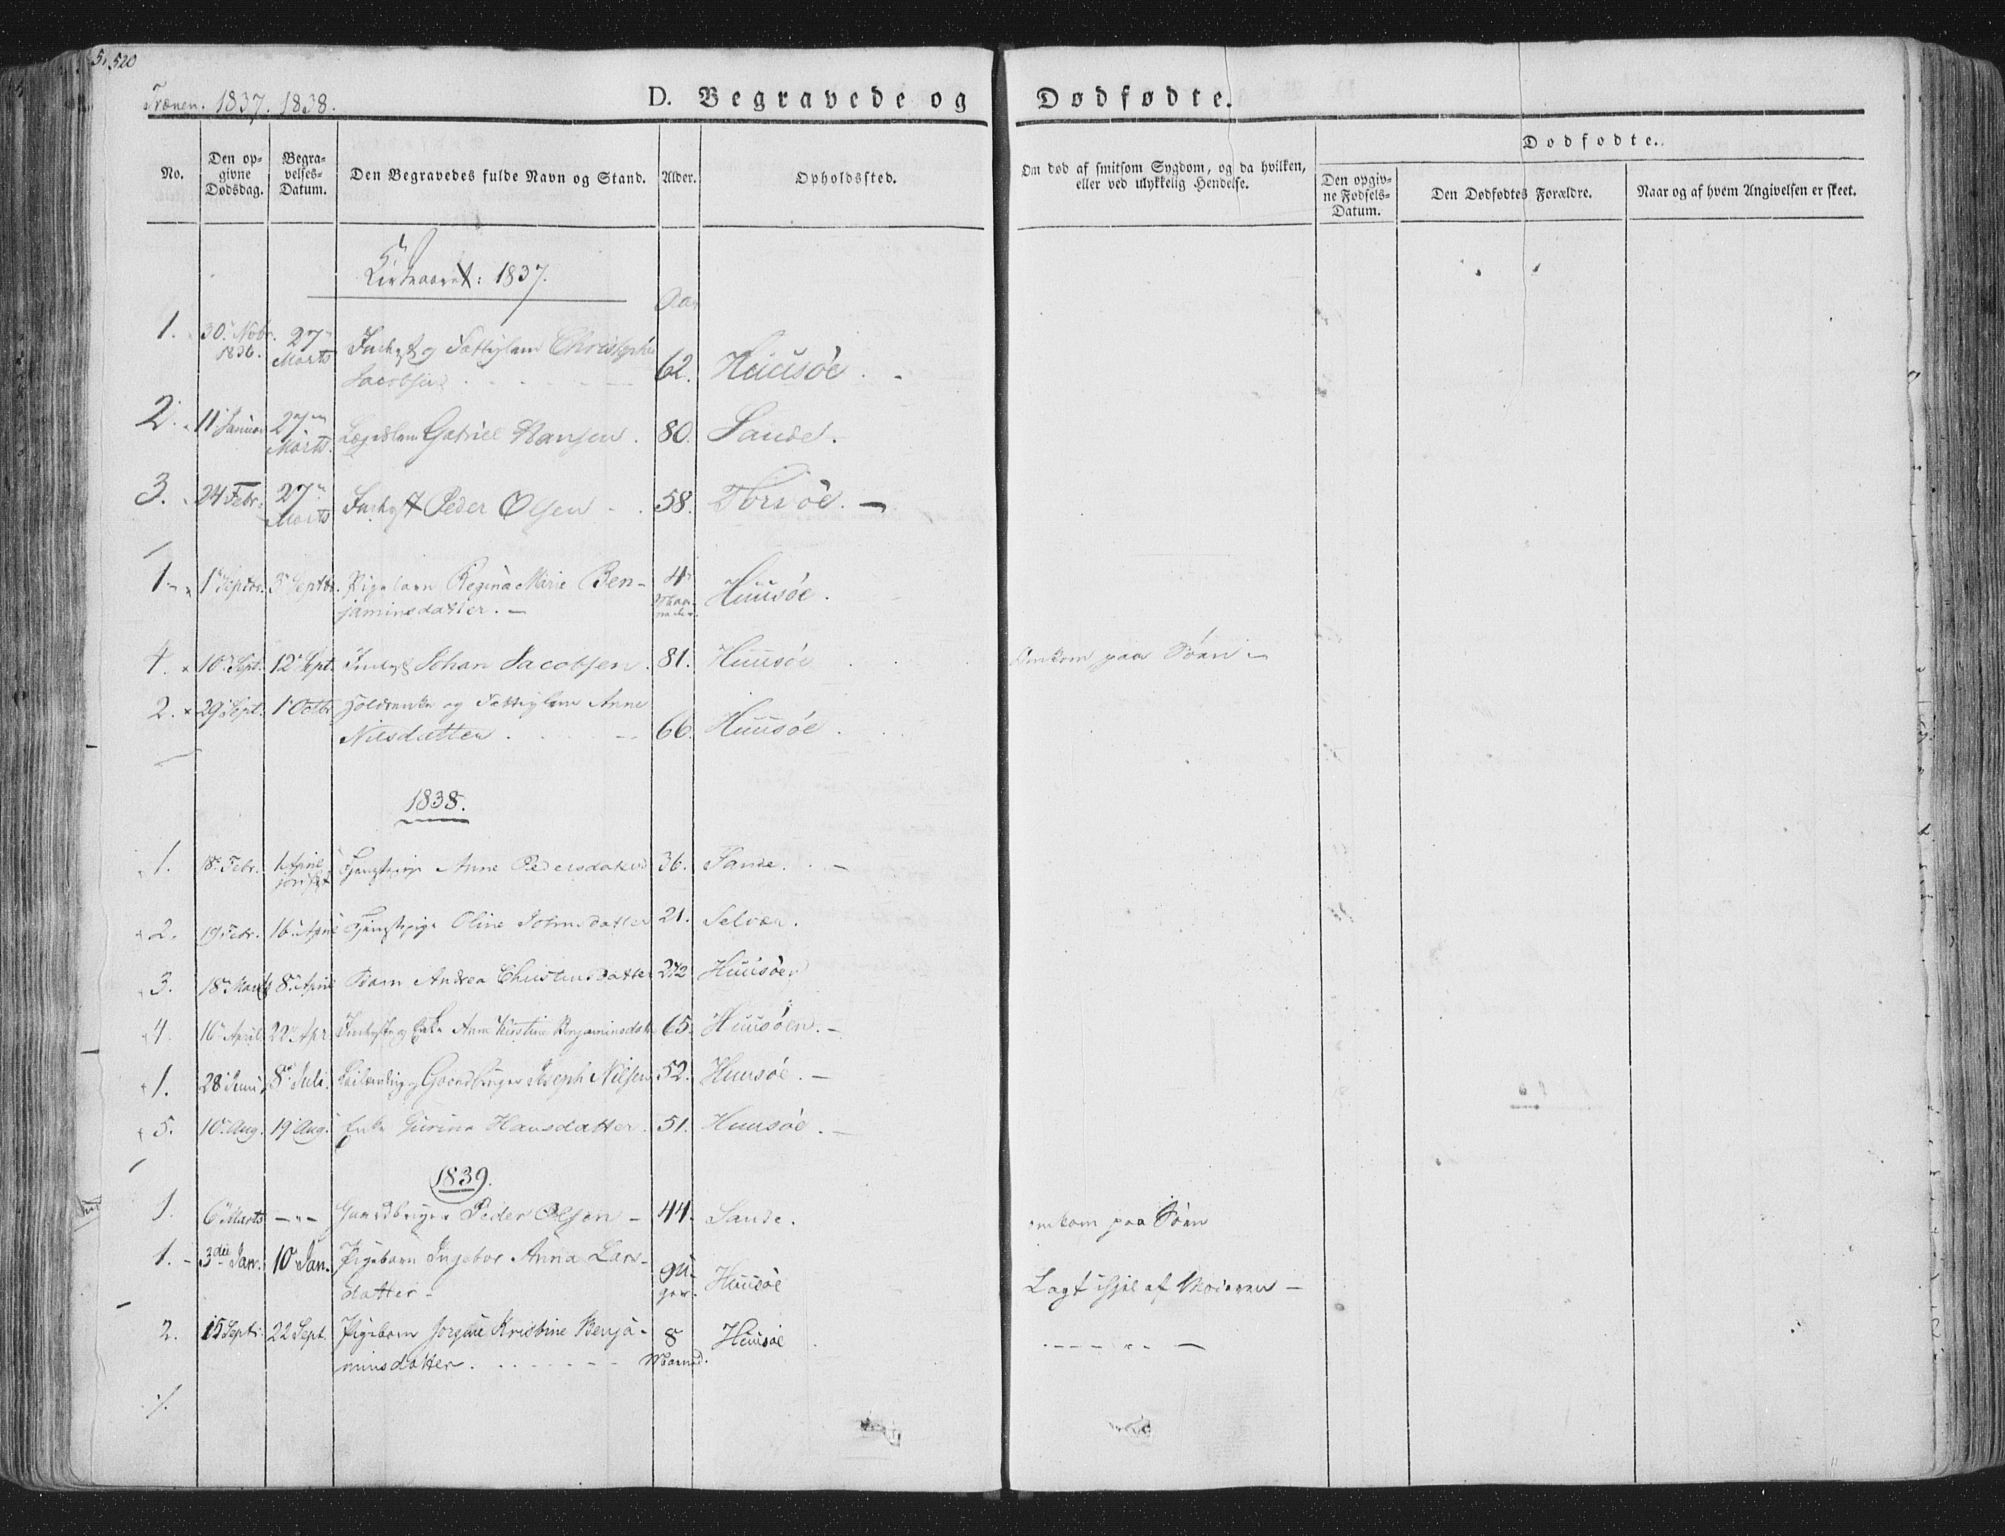 520
Trænen. 1837. 1838.
D. Begravede og Dødfødte.
No.
Den opgivne Dødsdag.
Begravelses-Datum.
Den Begravedes fulde Navn og Stand.
Alder.
Opholdssted.
Om død af smitsom Sygdom, og da hvilken, eller ved ulykkelig Hendelse.
Dødfødte.
Den opgivne Fødsels-Datum.
Den Dødfødtes Forældre.
Naar og af hvem Angivelsen er skeet.
Kirkeaaret: 1837.
Aar
1. 30. Novbr. 1836. 27 Marts Indhyst og Fattiglem
Jacobsen 62. Huusøe.
2. 11 Januar 27 Marts Lægdslem Gabriel Hansen. 80. Sande.
3. 24 Febr. 27 Marts Indhyst Peder Olsen 58. Torvøe. —
1. 1 Septbr. 3 Septbr. Pigebarn Regina Marie Ben-
jaminsdatter. — 4 Maaneder Huusøe.
4. 10 Sept. 12 Sept. Indhyst Johan Jacobsen. 81. Huusøe Omkom paa Søen —
2. 29 Sept. 1 Octbr og Fattiglem Anne
Nilsdatter 66. Huusøe.
1838.
1. 18 Febr. 1 April Anne Pedersdatter 36. Sande. —
2. 19 Febr. 16 April Tjenestepige Oline Johnsdatter 21. Selvær.
3. 18 Marts 8 April Barn Andrea Christensdatter 2½ Huusøen
4. 16 April 22 Apr Indhyst og Enke Anne Kirstine Benjaminsdatt 65. Huusøen. —
1. 28 Juni 8 Juli. Leilænding og Gaardbruger Joseph Nilsen 52. Huusøe. —
5. 10 Aug. 19 Aug. Enke Gurina Hansdatter. 51. Huusøe. —
1839.
1. 6 Marts — " — Gaardbruger Peder Olsen — 44. Sande. omkom paa Søen
1. - 3die Jan. 10 Jan. Pigebarn Ingebor Anna Lars-
datter — Huusøe Lagt ihjel af Moderen —
2. 15 Sept: 22 Sept. Pigebarn Jorgine Kristine Benja-
minsdatter. 8 Maaned. Huusøe — " —